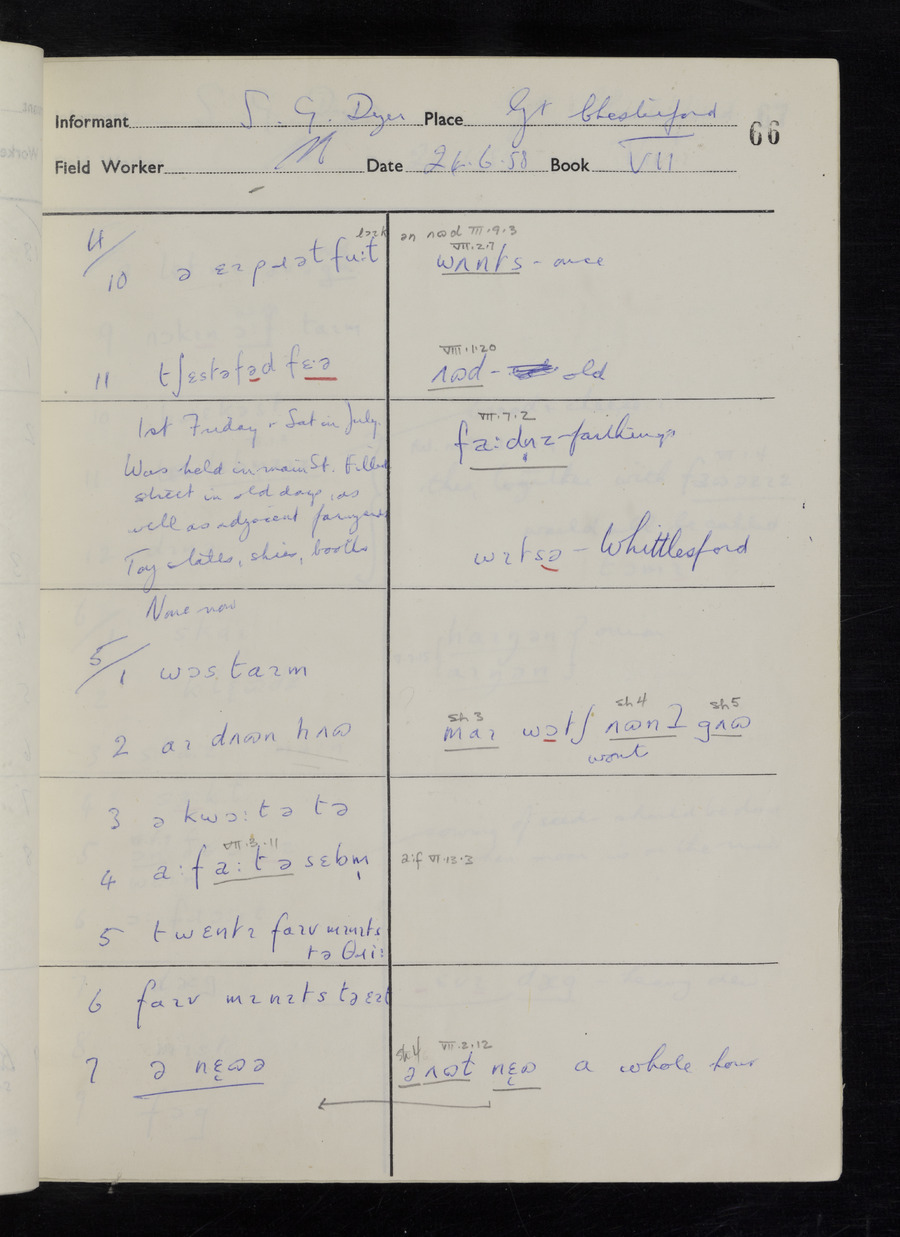 Informant S. G. Dyer Place Gt Chesterford
66
Field Worker Date 26.6.58 Book VII
4/10 ə ɛɪpɹət fuːt
ən ʌɷd III.9.3
VII.2.7
wʌnts - once
11 tʃestəfəd fɛːə
VIII.1.20
ʌɷd - old
1st Friday & Sat in July.
Was held in main St. Filled
street in old days, as
well as adjacent
Toy stalls, shies, booths
VII.7.2
faːdn̩z - farthings
wɪtsə - Whittlesford
None now
5/1 wɔs taɪm
2 aɪ dʌɷn hʌɷ
sh3 sh4 sh5
maɪ wɔtʃ ʌɷnʔ gʌɷ
wont
3 ə kwɔːtə tə
4 aːf aːtə sɛbm̩
VII.3.11
aːf VI.13.3
5 twɛntɪ faɪv mɪnɪts
tə θɹiː
6 faɪv mɪnɪts tə ɛɪt
7 ə nɛɷə
sh4 VII.2.12
ə ʌɷt nɛɷ a whole hour